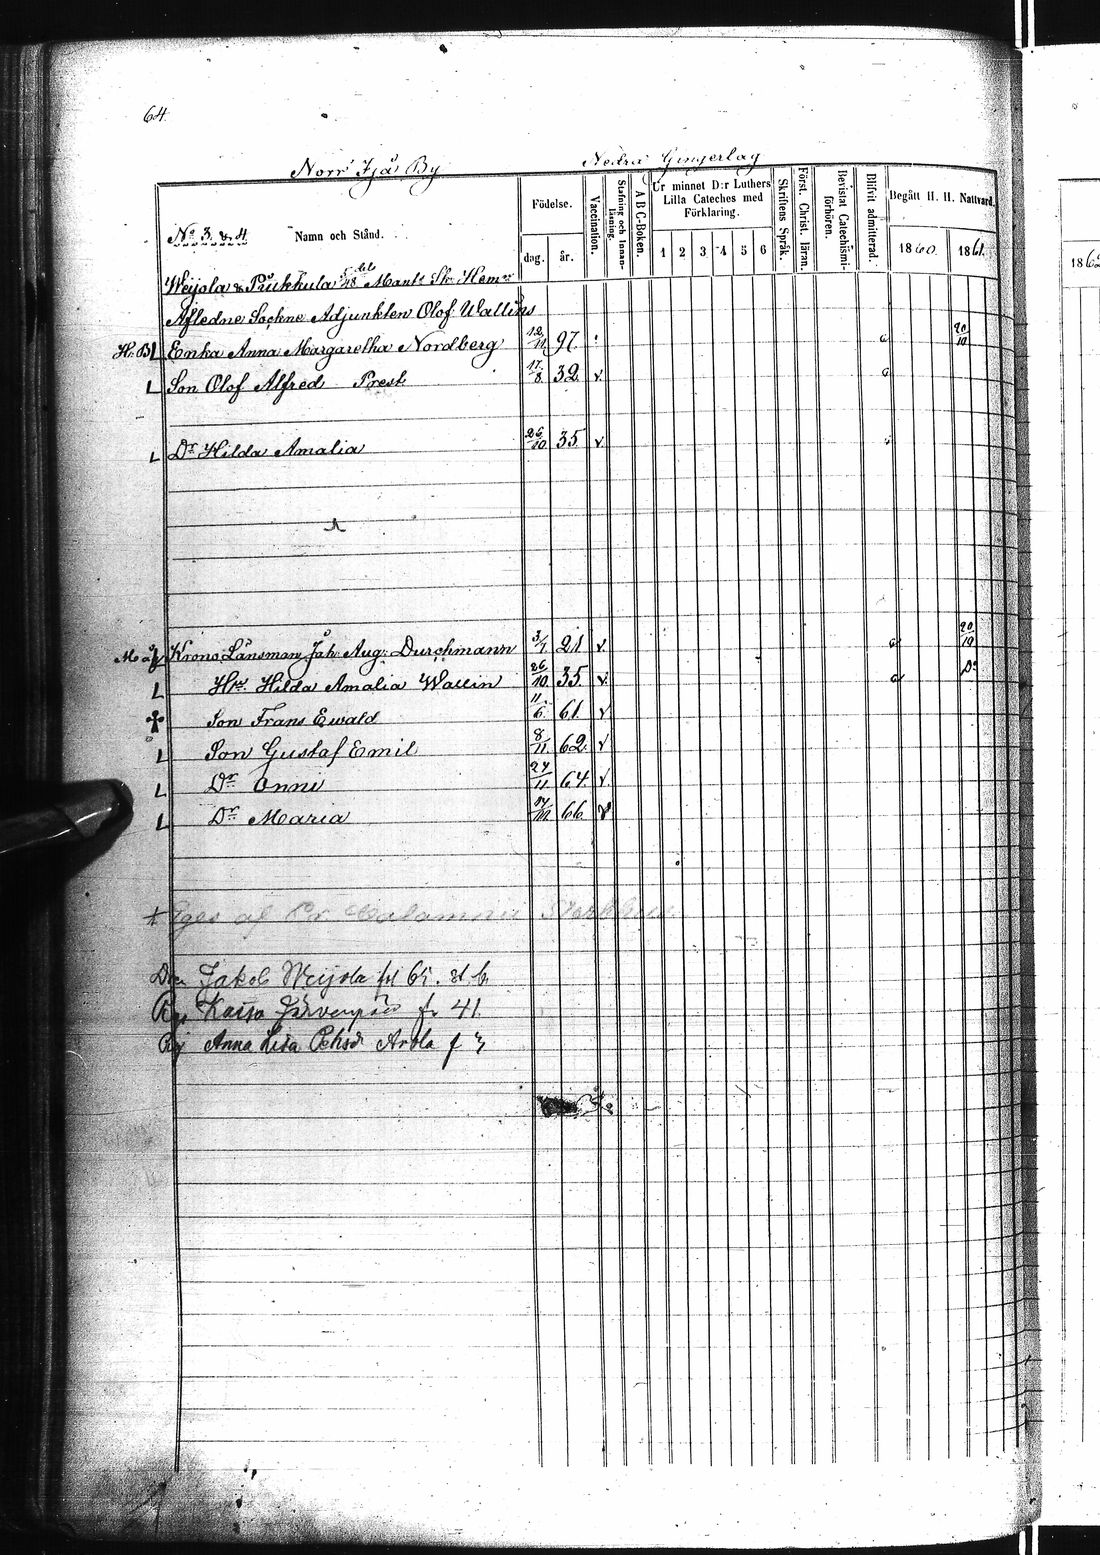 64.
Norr Ijå By Nedra Gingerlag
No 3. & 4. Namn och Stånd. Födelse. dag. år. Vaccination. Stafning och Innanläsning. A B C-Boken. Ur minnet D:r Luthers Lilla Cateches med Förklaring. 1 2 3 4 5 6 Skriftens Språk. Först. Christ. läran. Bevistat Catechismiförhören. Blifvit admitterad. Begått H. H. Nattvard. 1860. 1861. 1862
Weijola & Pukkula 5/48 del Mant. Sk. Hemn
Afledne Sockne Adjunkten Olof Wallins
Enka Anna Margaretha Nordberg 12/11 97. 20/10
L Son Olof Alfred Prest 17/8 32. v.
L Dr Hilda Amalia 26/10 35 v.
Krono Länsman Joh. Aug. Durchmann 3/7 21 v. 20/10
L Hru Hilda Amalia Wallin 26/10 35. v. Do
Son Frans Ewald 11/6 61. v
L Son Gustaf Emil 8/11 62. v
L Dr Onni 24/11 64. v.
L Dr Maria 66. v
Jakob Weijola
Kaisa Järvenpää fr 41.
Anna Lisa Arola f